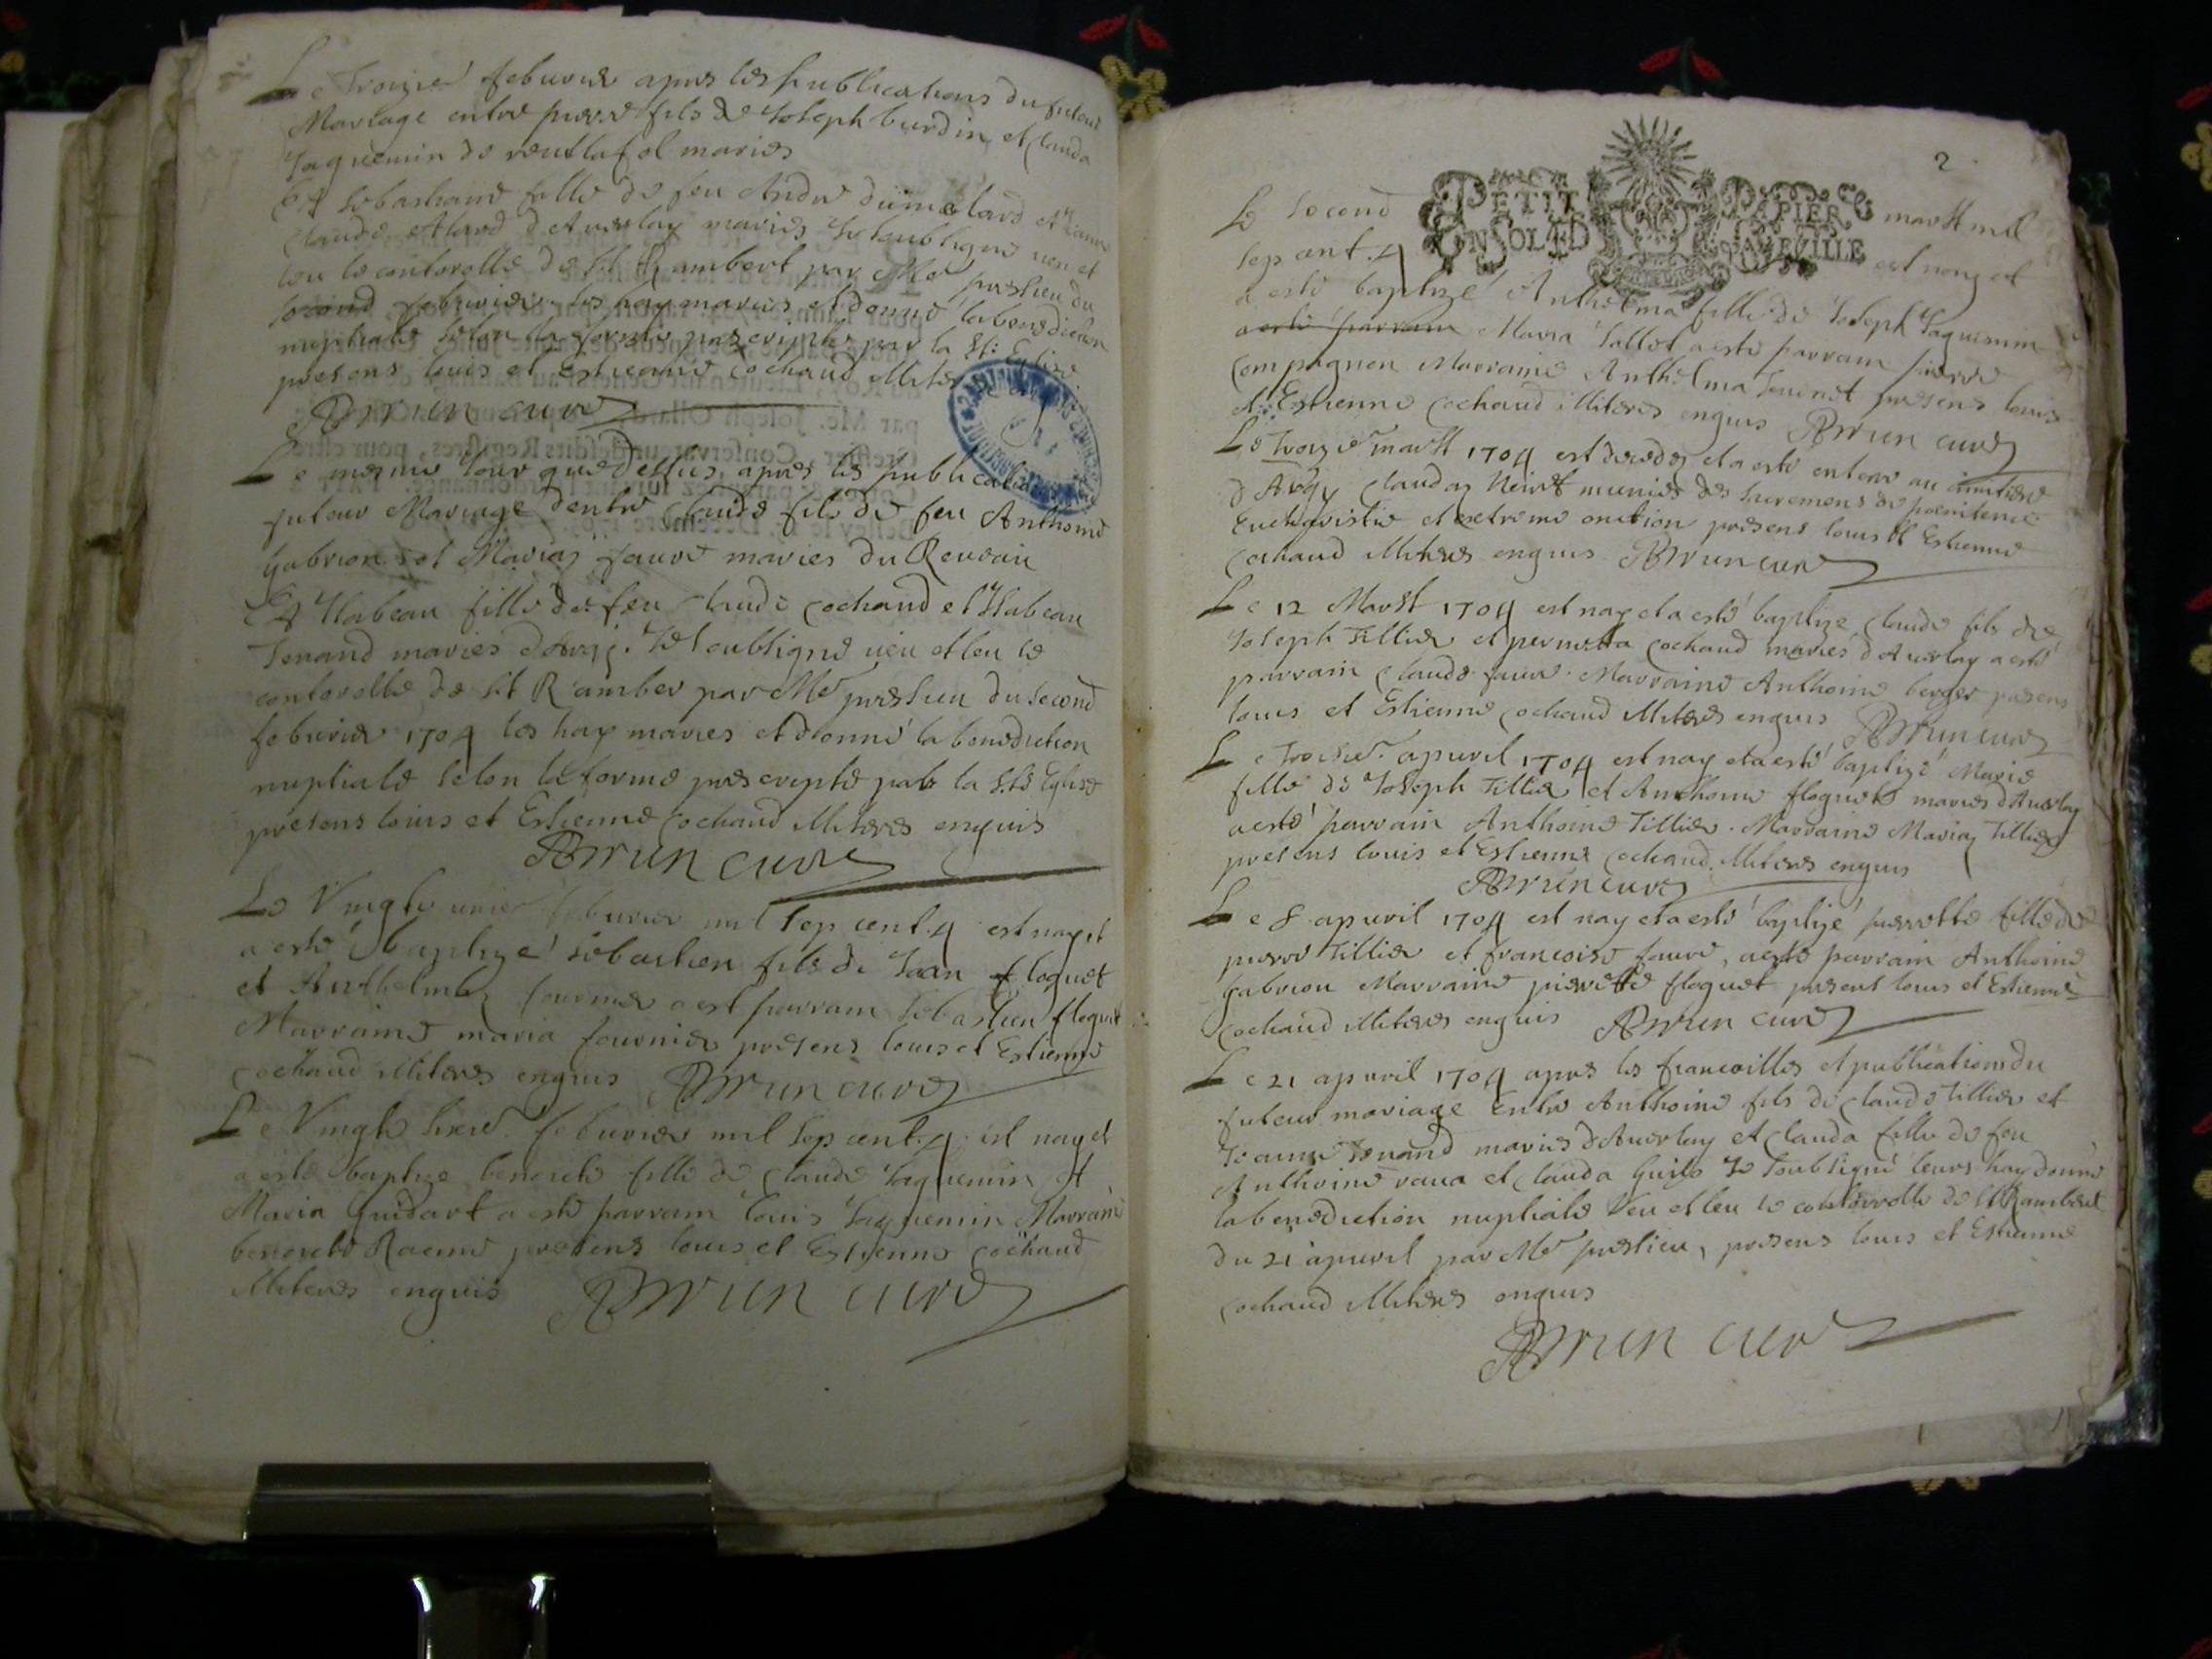 Le Troizie febvrier apres les publications du futeur
Mariage entre pierre fils de Joseph burdin et Clauda
Jaquemin de mariés
Et sebastiane fille de feu Andre dumolard et
Claude Alard d'Averlay mariés Je soubsigné veu et
leu le controlle de St Rambert par Me preslieu du
second febvrier les hay mariés et donné la benediction
nuptiale selon la forme prescripte par la Ste Eglise
presens louis et Estienne Cochaud illiteres
Brun curé
Le mesme Jour que dessus apres les publications
futeur Mariage d'entre Claude fils de feu Anthoine
gabrion et Mariaz faure mariés du
Et Ysabeau fille de feu Claude Cochaud et Ysabeau
Tenand mariés d'Argi. Je soubsigné veu et leu le
controlle de St Ramber par Me preslieu du second
febvrier 1704 les hay mariés et donné la benediction
nuptiale selon la forme prescripte par la Ste Eglise
presens louis et Estienne Cochaud illiteres enquis
Brun curé
Le Vingte unie febvrier mil sep cent.4 est nay et
a esté baptizé sebastien fils de Jean floquet
et Anthelma fournier a est parrain sebastien floquet
Marraine maria fournier presens louis et Estienne
Cochaud illiteres enquis Brun curé
Le Vingte sixie febvrier mil sep cent.4 est nay et
a esté baptize benoite fille de Claude Jaquemin et
Maria guidart a esté parrain louis Jaquemin Marraine
benoite presens louis et Estienne Cochaud
illiteres enquis Brun curé
2
PETIT PAPIER
CONSOLID
Le second marst mil
sep cent.4 est nay et
a esté baptizé Anthelma fille de Joseph Jaquemin
a esté parrain Maria Jallet a esté parrain pierre
Compagnon Marraine Anthelma presens louis
et Estienne Cochaud illiteres enquis Brun curé
Le Troizie marst 1704 est decedez et a esté enterré au cimitiere
d'Argy Claudaz munies des Sacremens de poenitence
Eucharistie et extreme onction presens louis et Estienne
Cochaud illiteres enquis Brun curé
Le 12 Marst 1704 est nay et a esté baptize Claude fils de
Joseph Tillier et pernetta Cochaud mariés d'Averlay a esté
parrain Claude faure. Marraine Anthoine berger presens
louis et Estienne Cochaud illiteres enquis Brun curé
Le Troisie apuril 1704 est nay et a esté baptizé Marie
fille de Joseph Tillier et Anthoine floquet mariés d'Averlay
a esté parrain Anthoine Tillier. Marraine Mariaz Tillier
presens louis et Estienne Cochaud illiteres enquis
Brun curé
Le 8 apuril 1704 est nay et a esté baptizé pierrette fille de
pierre Tillier et francoise faure, a esté parrain Anthoine
gabrion Marraine pierrette floquet present louis et Estienne
Cochaud illiteres enquis Brun curé
Le 21 apuril 1704 apres les fiancailles et publications du
futeur mariage Entre Anthoine fils de Claude Tillier et
Jeanne Tenand mariés d'Averlay et Clauda fille de feu
Anthoine et Clauda Je soubsigné leurs hay donné
la benediction nuptiale Veu et leu le controlle de St Rambert
du 21 apuril par Me preslieu, presens louis et Estienne
Cochaud illiteres enquis
Brun curé